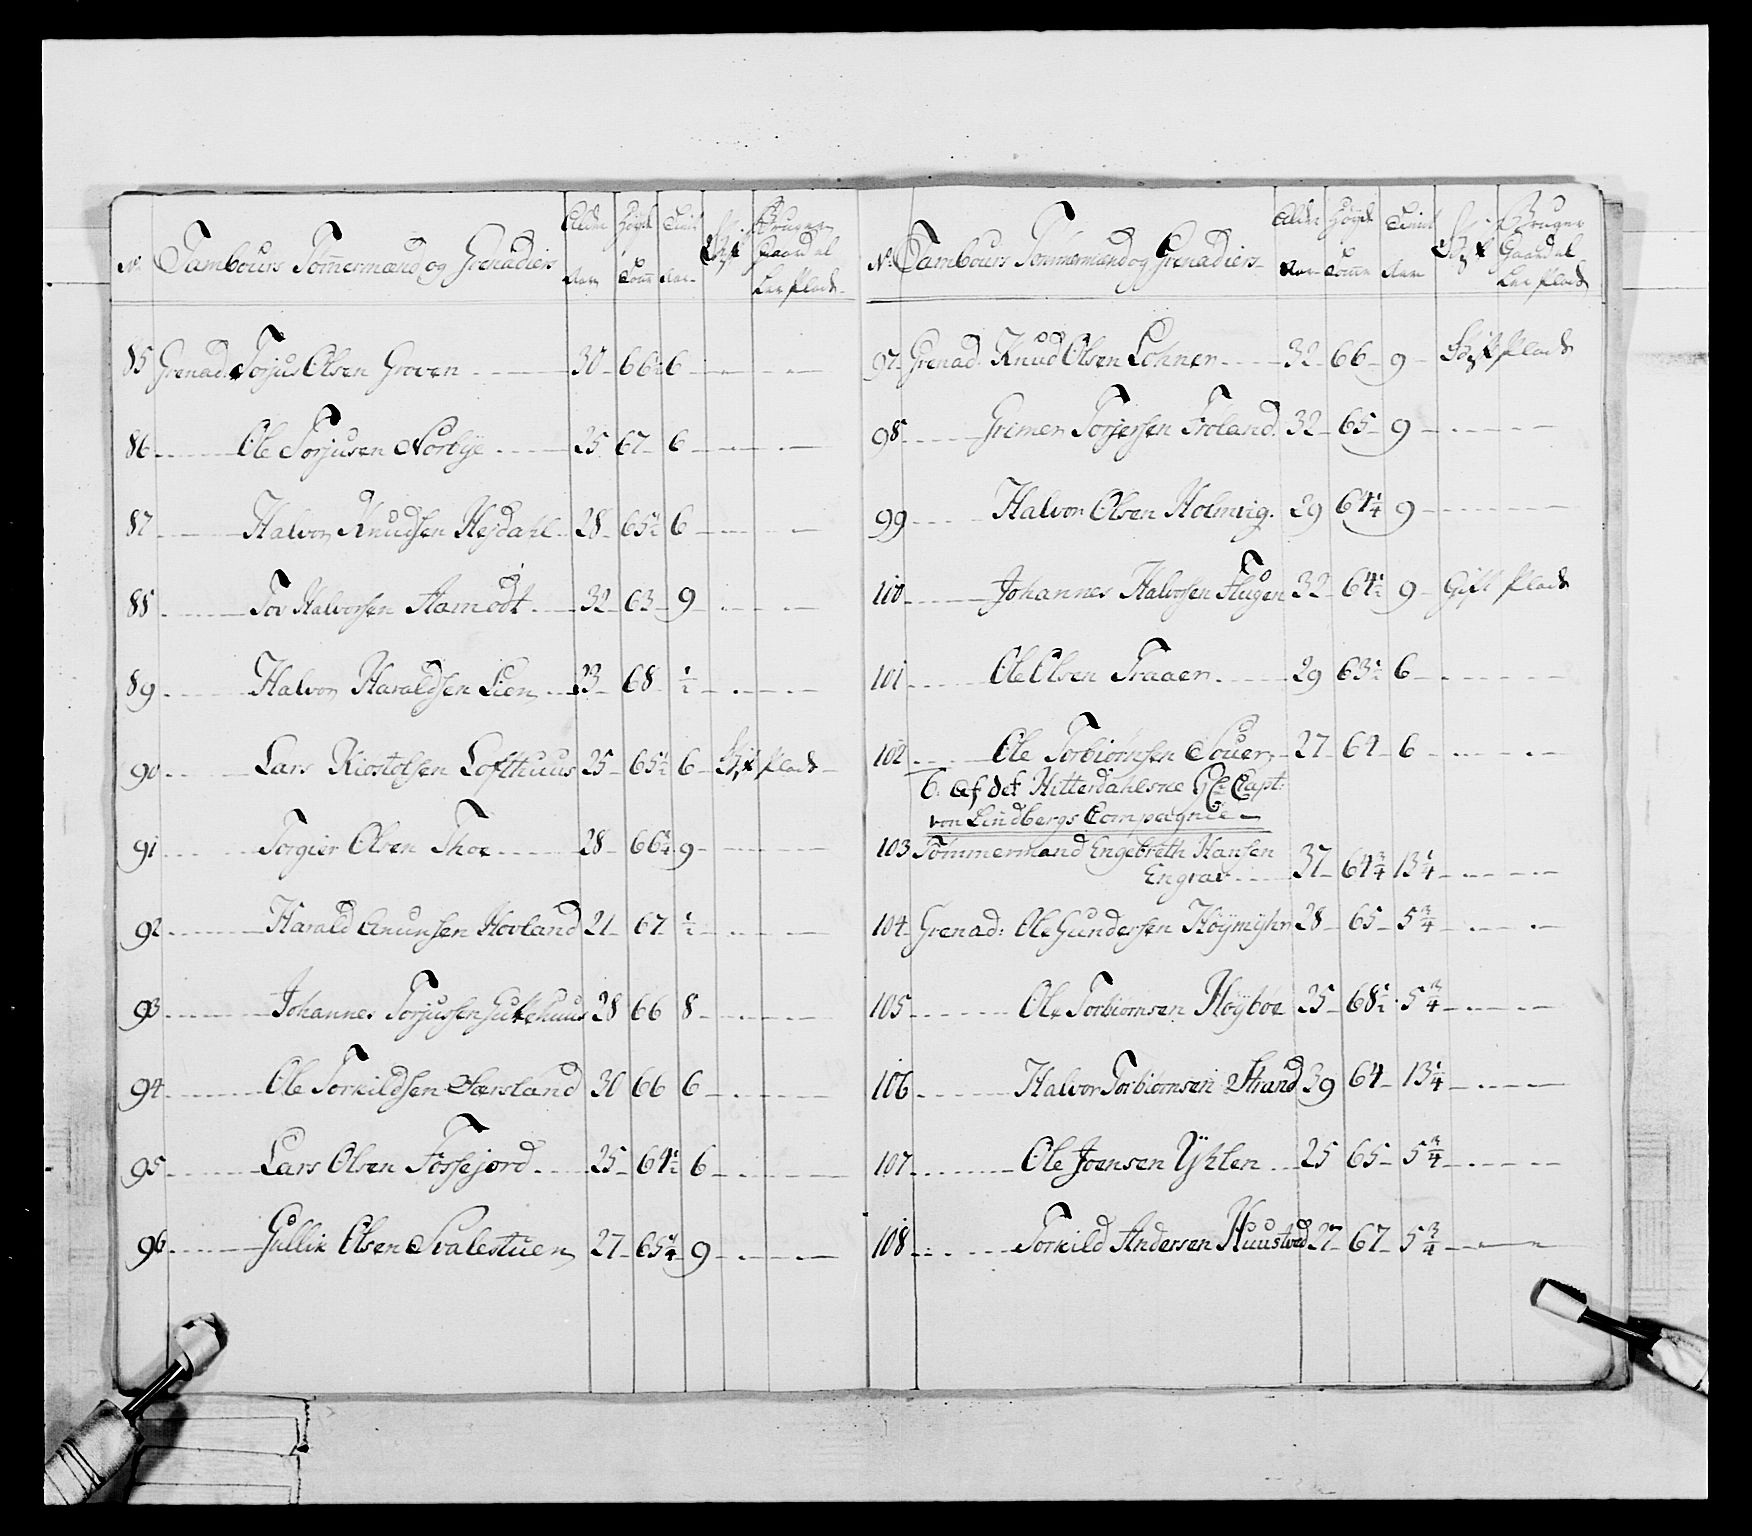 No Tambours Tommermænd og Grenadiers Alder Aar Höyde Tomr Tient Aar Gift Bruger Gaard el Ler Plads
85 Grenad. Torjus Olsen Groven 30 66½ 6
86 Ole Torjusen Norbÿe 25 67 6
87 Halvor Knudsen Hejdahl 28 65½ 6
88 Tov Halvorsen Aamodt 32 63 9
89 Halvor Haraldsen Lien 23 68 ½
90 Lars Kiostolsen Lofthuus 25 65½ 6 Gift Plads
91 Torgier Olsen Thoe 28 66½ 9
92 Harald Anunsen Hovland 21 67 ½
93 Johannes Torjussen Gullehuus 28 66 8
94 Ole Torkildsen Særsland 30 66 6
95 Lars Olsen Fossejord 25 64½ 6
96 Gullik Olsen Svalestuen 27 65¼ 9
No Tambours Tömmermænd og Grenadiers Alder Aar Höyde Tomr Tient Aar Gift Bruger Gaard el Ler Plads
97 Grenad. Knud Olsen Lohner 32 66 9 Gift Plads
98 Greimer Torjersen Froland 32 65 9
99 Halvor Olsen Holmvig. 29 64¼ 9
100 Johannes Halvorsen Hugen 32 64½ 9 Gift Plads
101 Ole Olsen Traaen 29 63½ 6
102 Ole Torbiörnsen Souer 27 64 6
6. af det Hitterdahlske Capt:
von Lindbergs Compagnie
103 Tömmermand Engebreth Hansen
Engrav 37 64¾ 13¼
104 Grenad: Ole Gundersen Höÿmÿhr 28 65 5¾
105 Ole Torbiornsen Höÿboe 25 68½ 5¾
106 Halvor Torbiörnsen Strand 39 64 13¼
107 Ole Joensen Ÿtzlen 25 65 5¾
108 Torkild Andersen Huustved 27 67 5¾